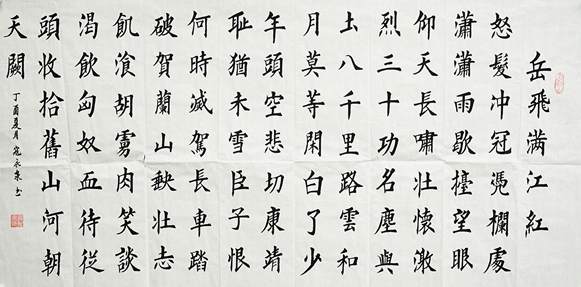 岳飛满江紅
怒髮冲冠凴欄處
瀟瀟雨歇擡望眼
仰天長嘯壮懷激
烈三十功名塵與
土八千里路雲和
月莫等閑白了少
年頭空悲切康靖
耻猶未雪臣子恨
何時滅駕長車踏
破賀蘭山缺壮志
飢飡胡虜肉笑談
渴飲匈奴血待從
頭收拾舊山河朝
天闕
丁酉夏月